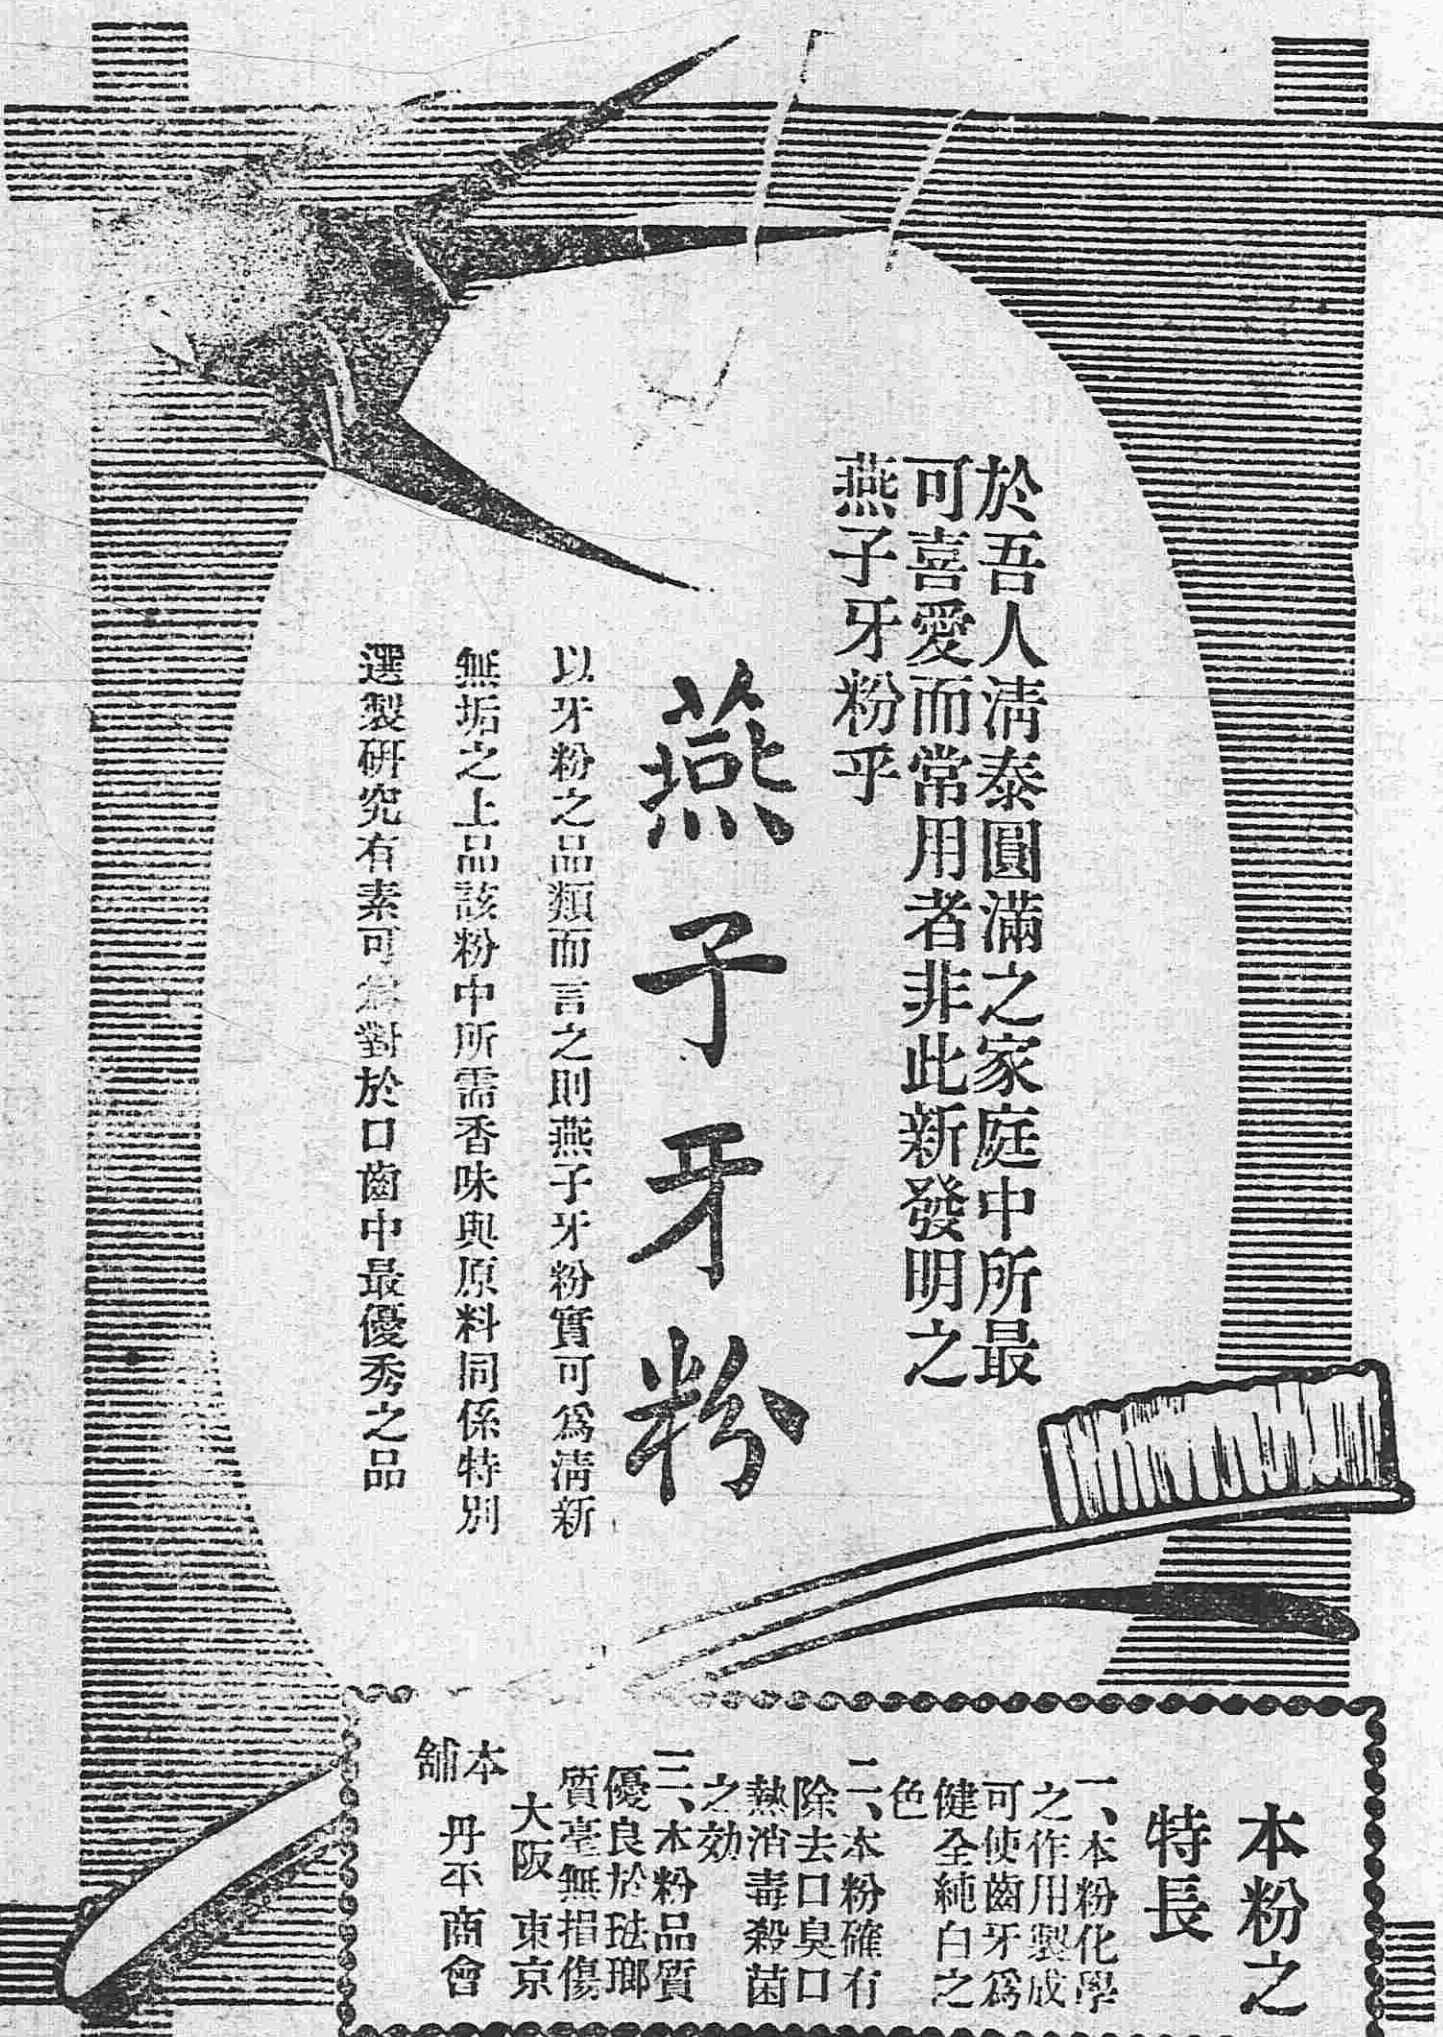 於吾人淸泰圓滿之家庭中所最
可喜愛而常用者非此新發明之
燕子牙粉乎
燕子牙粉
以牙粉之品類而言之則燕子牙粉實可爲淸新
無垢之上品該粉中所需香味與原料同係特別
選製硏究有素可爲對於口齒中最優秀之品
本粉之
特長
一、本粉化學
之作用製成
可使齒牙爲
健全純白之
色
二、本粉確有
除去口臭口
熱消毒殺菌
之効
三、本粉品質
優良於琺瑯
質毫無損傷
大阪 東京
本舖
丹平商會